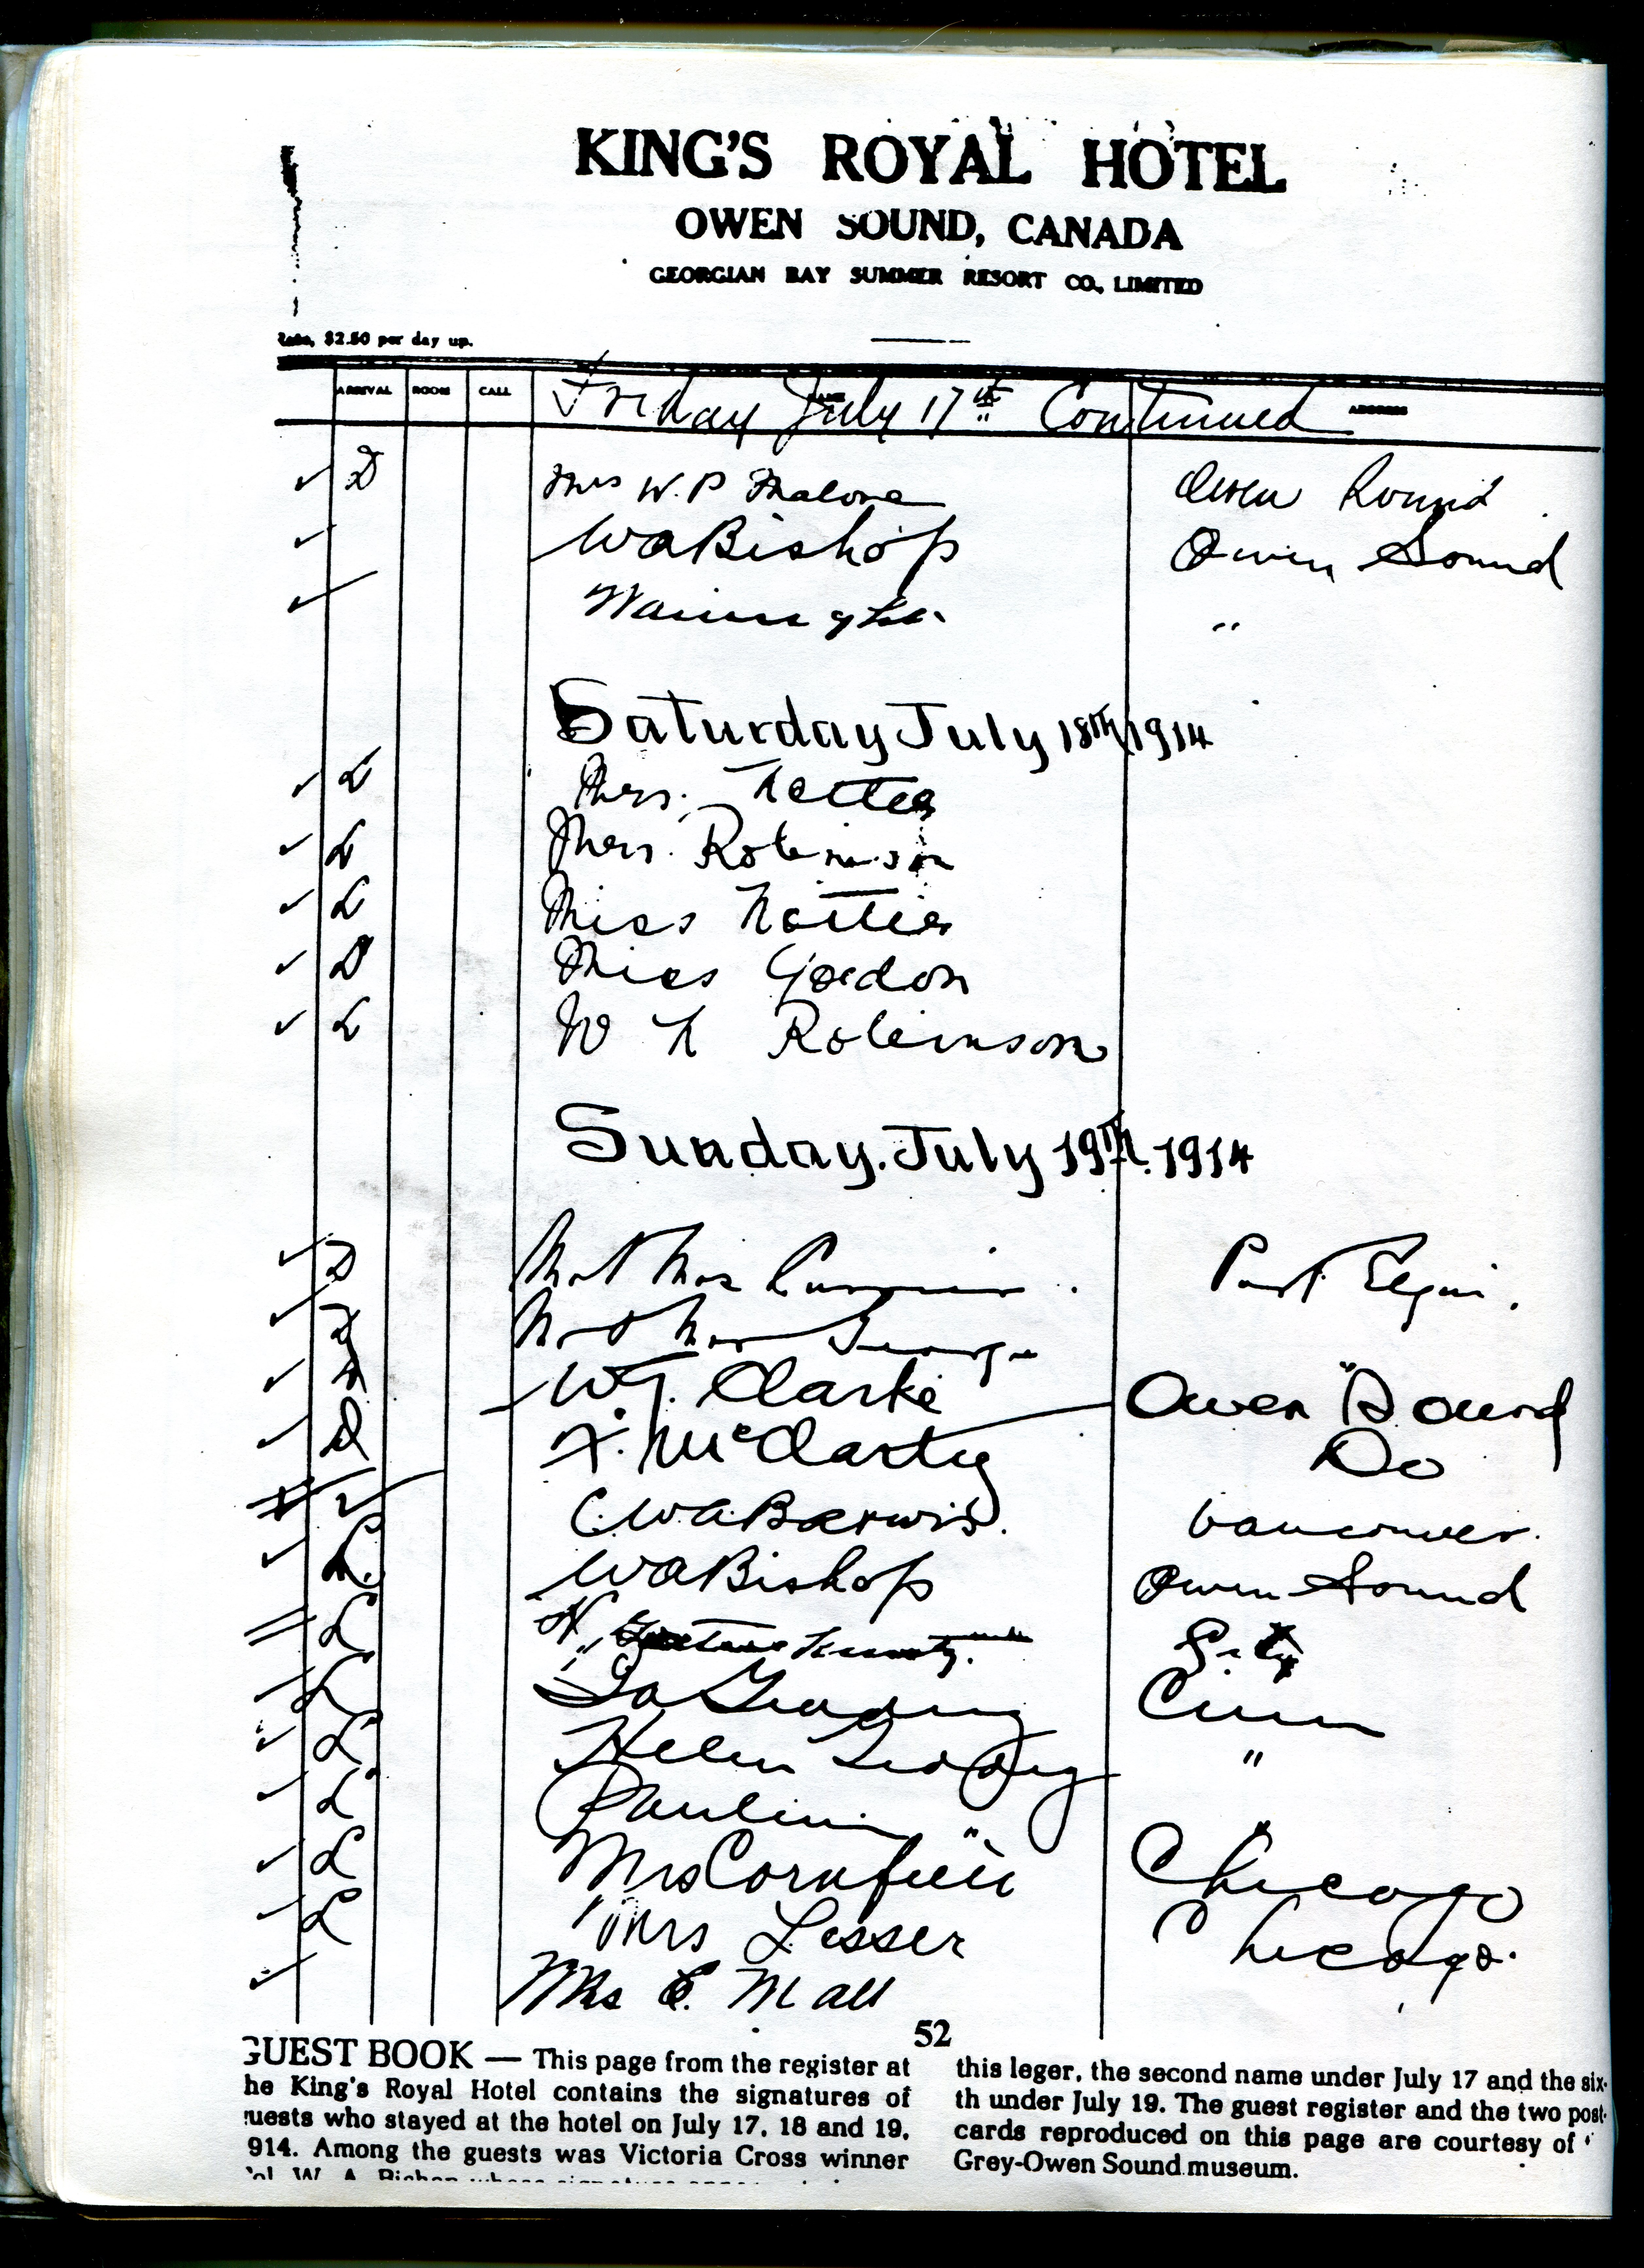 KING'S ROYAL HOTEL
OWEN SOUND, CANADA
GEORGIAN BAY SUMMER RESORT CO., LIMITED
Rate, $2.50 per day up.
ARRIVAL ROOM CALL NAME ADDRESS
Friday July 17th Continued
D Mrs W. P Malone Owen Sound
WABishop Owen Sound
"
Saturday July 18th 1914
L Mrs.
L Mrs. Robinson
L Miss
D Miss Gordon
L W Robinson
Sunday. July 19th. 1914
D Mr & Mrs Port Elgin.
Mr & Mrs George "
W. J. Clarke Owen Sound
D McClarty Do
C.W.A. Vancouver.
L. WABishop Owen Sound
L City
L Cinn
L Helen "
L Pauline " "
L Mrs Cornfield Chicago
L Mrs Lesser Chicago.
Mrs E. Mall
52
GUEST BOOK — This page from the register at
he King's Royal Hotel contains the signatures of
uests who stayed at the hotel on July 17, 18 and 19,
914. Among the guests was Victoria Cross winner
ol. W. A. Bishop whose signature
this leger, the second name under July 17 and the six-
th under July 19. The guest register and the two post-
cards reproduced on this page are courtesy of
Grey-Owen Sound museum.